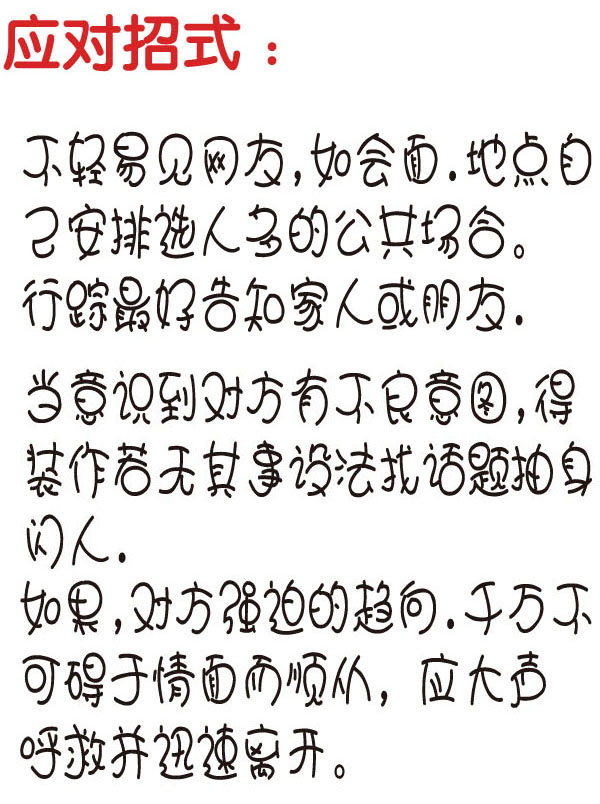 应对招式：
不轻易见网友,如会面.地点自
己安排选人多的公共场合。
行踪最好告知家人或朋友.
当意识到对方有不良意图,得
装作若无其事设法找话题抽身
闪人.
如果,对方强迫的趋向.千万不
可碍于情面而顺从，应大声
呼救并迅速离开。